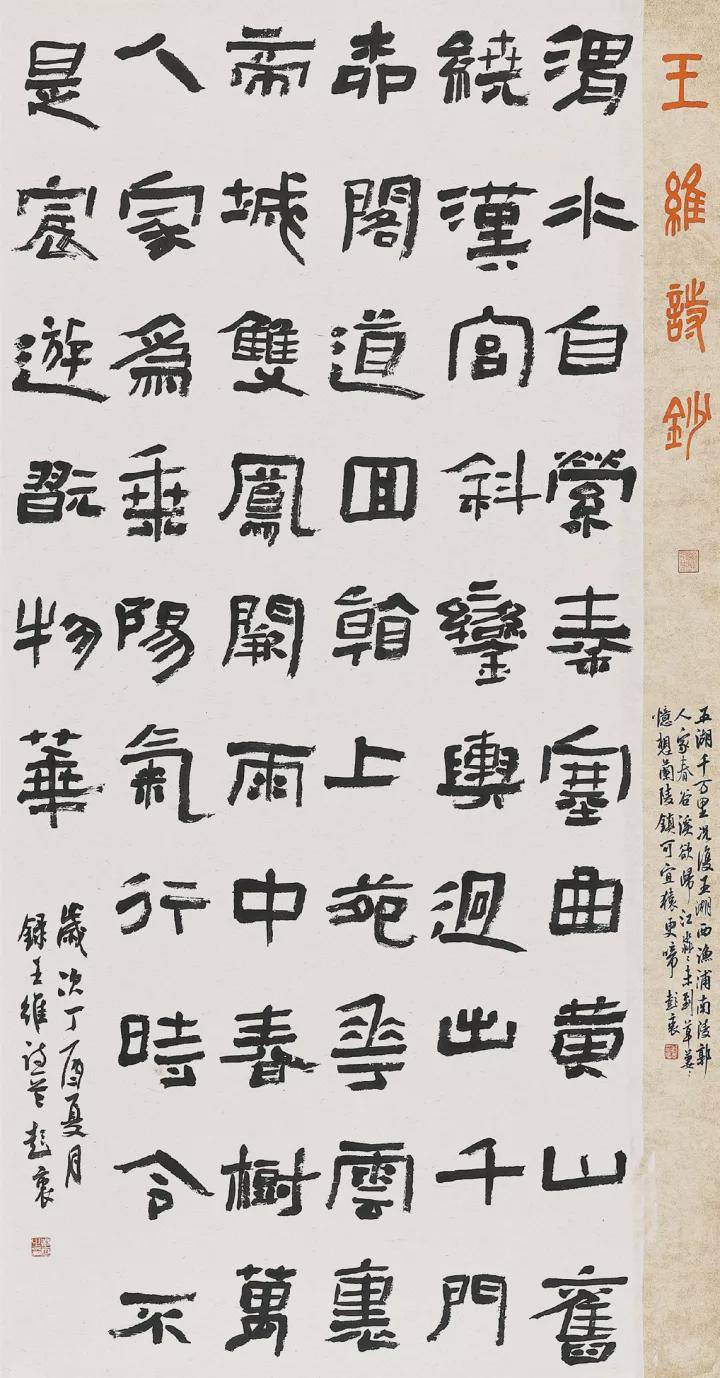 王維詩鈔
五湖千万里况復五湖西漁浦南陵郭
人家春谷溪欲歸江淼〻未到草萋〻
憶想蘭陵鎮可宜猿更啼
渭水自縈秦塞曲黄山舊
繞漢宮斜鑾輿迥出千門
柳閣道回看上苑花雲裏
帝城雙鳳闕雨中春樹萬
人家爲乘陽氣行時令不
是宸遊翫物華
歲次丁酉夏月
録王維诗